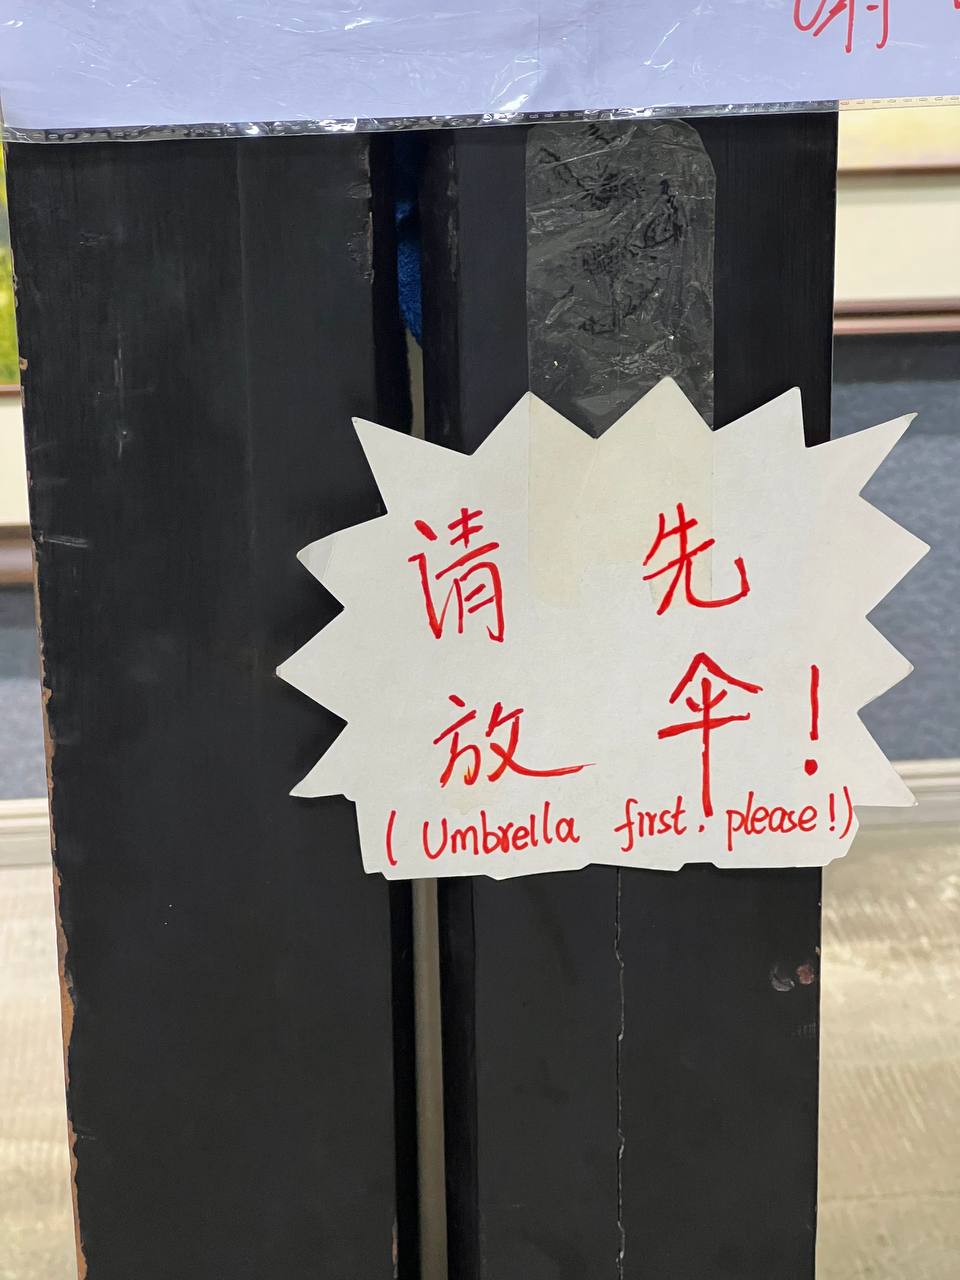 请先
放伞!
(Umbrella first. please!)